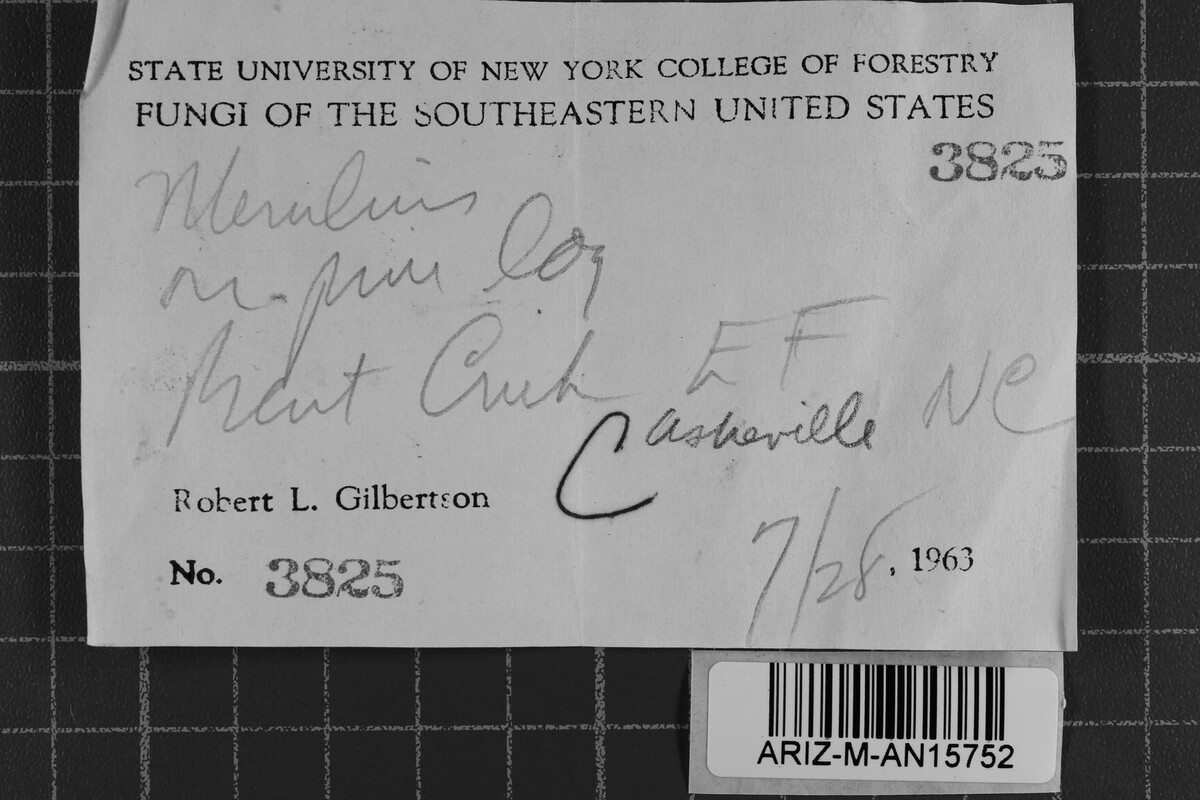 STATE UNIVERSITY OF NEW YORK COLLEGE OF FORESTRY
FUNGI OF THE SOUTHEASTERN UNITED STATES
3825
Merulius
on pine log
Bent Creek EF
Asheville NC
Robert L. Gilbertson
No. 3825
7/28, 1963
ARIZ-M-AN15752